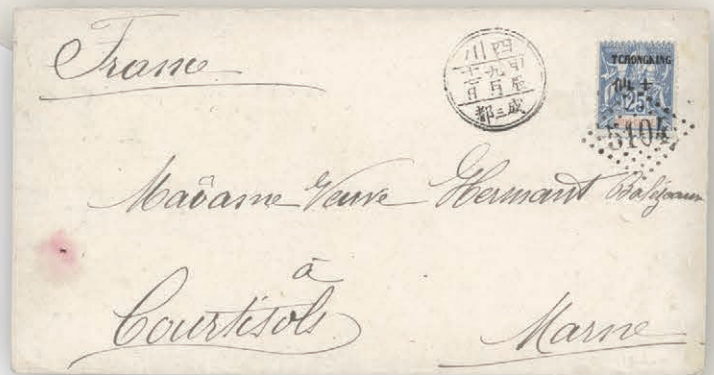 France
四川
甲辰
九月
成都
TCHONGKING
25
5104
Madame Veuve Hermant
à
Courtisols
Marne